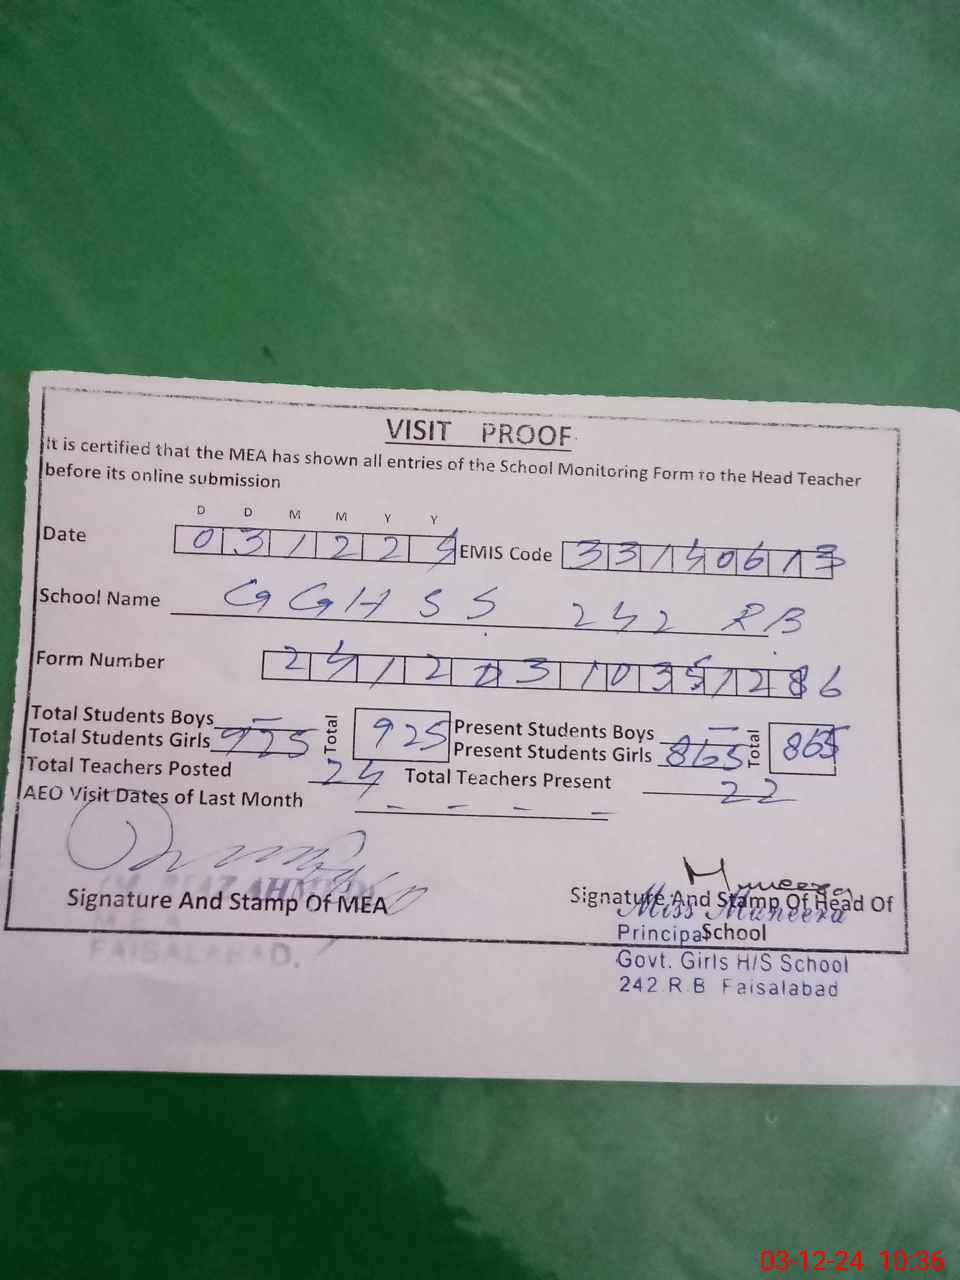 VISIT PROOF
It is certified that the MEA has shown all entries of the School Monitoring Form to the Head Teacher
before its online submission
D D M M Y Y
Date 031224 EMIS Code 33140613
School Name GGHSS 242 RB
Form Number 24120310351286
Total Students Boys - Total 925 Present Students Boys - Total 865
Total Students Girls 925 Present Students Girls 865
Total Teachers Posted 24 Total Teachers Present 22
AEO Visit Dates of Last Month - - - -
Muneeza
AHMED
Signature And Stamp Of MEA Signature And Stamp Of Head Of
School
M.E.A
FAISALABAD.
Miss Muneera
Principal
Govt. Girls H/S School
242 R.B Faisalabad
03-12-24 10:36